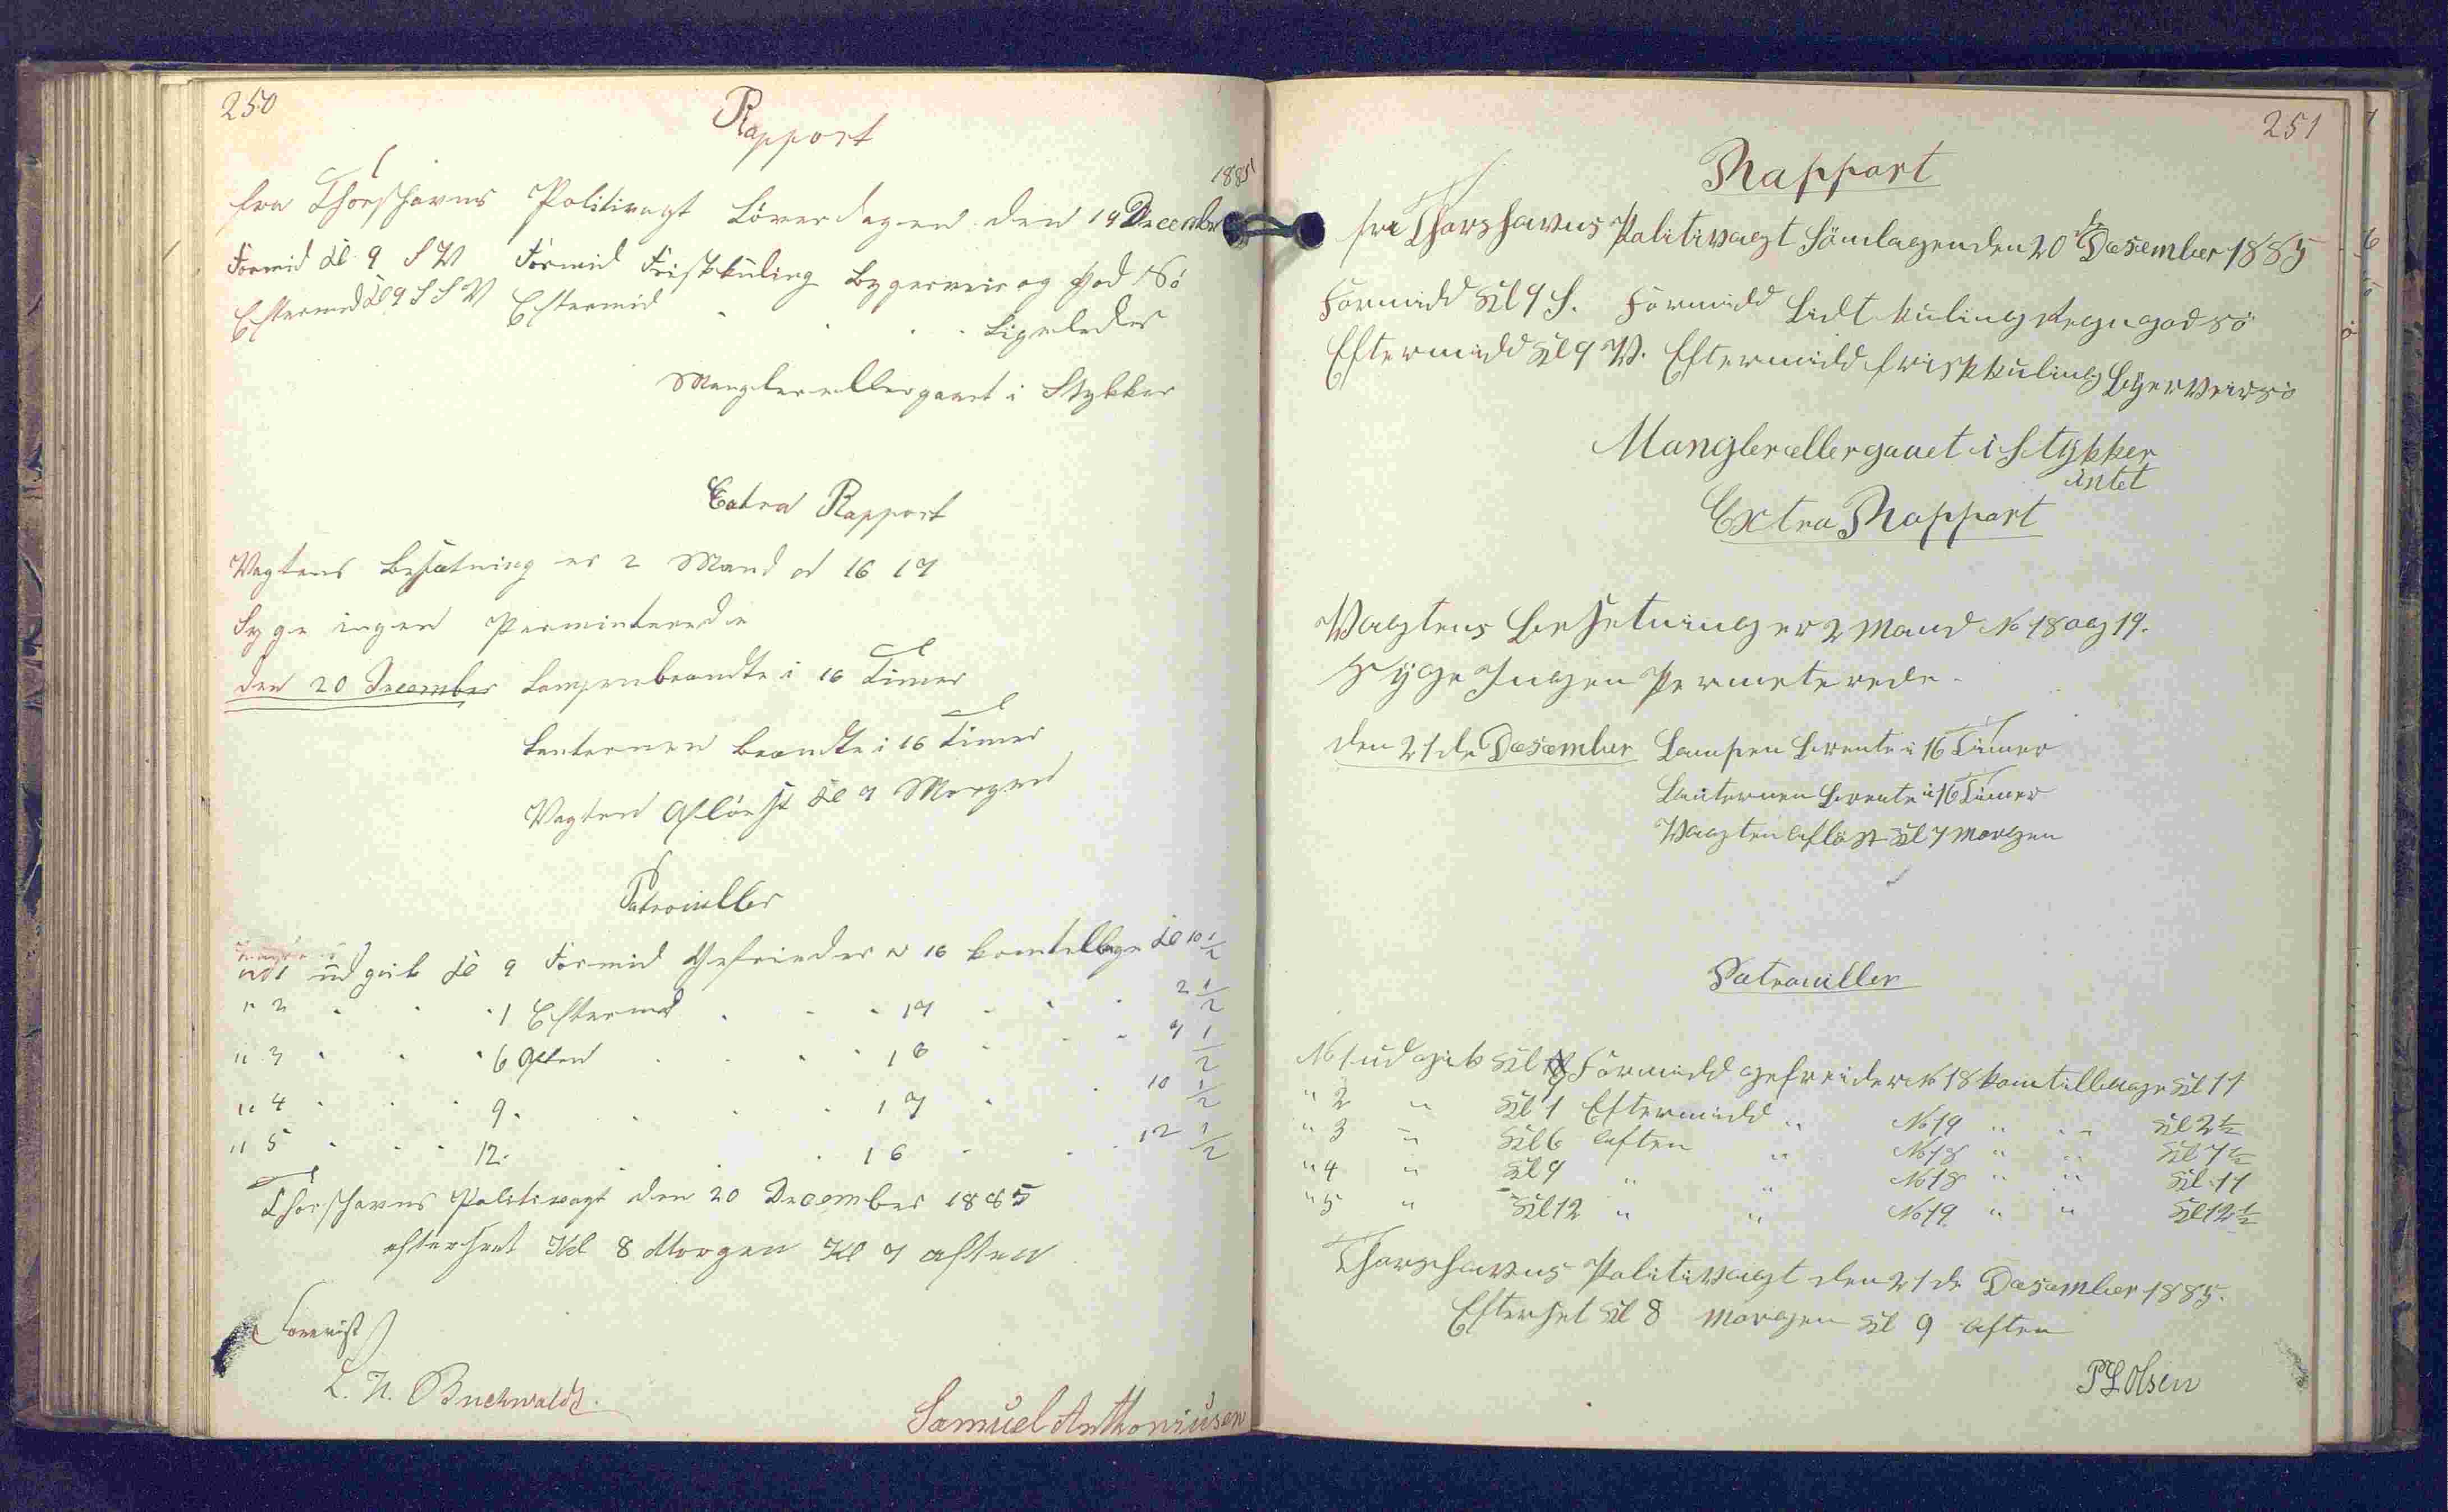 250
Rapport
1885
fra Thorshavns Politivagt Löverdagen den 19 December
Formid Kl 9 S W Formid Friskkuling Bygerveir og God Sö
Eftermid Kl 9 S S W Eftermid " " " " Ligeledes
Mangler ellergaaet i Stykker
Extra Rapport
Vagtens Besætning er 2 Mand N 16 17
Syge ingen Perminterede
den 20 December Lampen brændte i 16 Timer
Lanternen brændte i 16 Timer
Vagten Aflöst Kl 7 Morgen
Patrouiller
N 1 udgik Kl 9 Formid Gefreider N 16 kom tilbage Kl 10 1/2
" 2 " " " 1 Eftermid " " " 17 " " " 2 1/2
" 3 " " " 6 Aften " " " 16 " " " 7 1/2
" 4 " " " 9 " " " " 17 " " 10 1/2
" 5 " " " 12 " " " " 16 " " " 12 1/2
Thorshavns Politivagt den 20 December 1885
efterseet Kl 8 Morgen Kl 7 aften
Forevist
L. N. Buchwaldt.
Samuel Anthoniusen
251
Rapport
fra Thorshavns Politivagt Söndagen den 20 de Desember 1885
Formidd Kl 9 S. Formidd Lidt kuling Regn god sö
Eftermidd Kl 9 W. Eftermidd frisk kuling Byerveir sö
Mangler ællergaaet i Stykker
intet
Extra Rapport
Wagtens Besetning er 2 Mand No 18 og 19.
Syge Ingen Permeterede.
den 21 de Desember Lampen brente i 16 Timer
Lanternen brente i 16 Timer
Wagten Aflöst Kl 7 Morgen
Patrouiller
No 1 udgik Kl 9 Formidd gefreider No 18 kom tilbage Kl 11
" 2 " Kl 1 Eftermidd " No 19 " " Kl 2 1/2
" 3 " Kl 6 Aften " No 18 " " Kl 7 1/2
" 4 " Kl 9 " " No 18 " " Kl 11
" 5 " Kl 12 " " No 19 " " Kl 12 1/2
Thorshavns Politivagt den 21 de Desember 1885.
Efterset Kl 8 Morgen Kl 9 Aften
P L Olsen